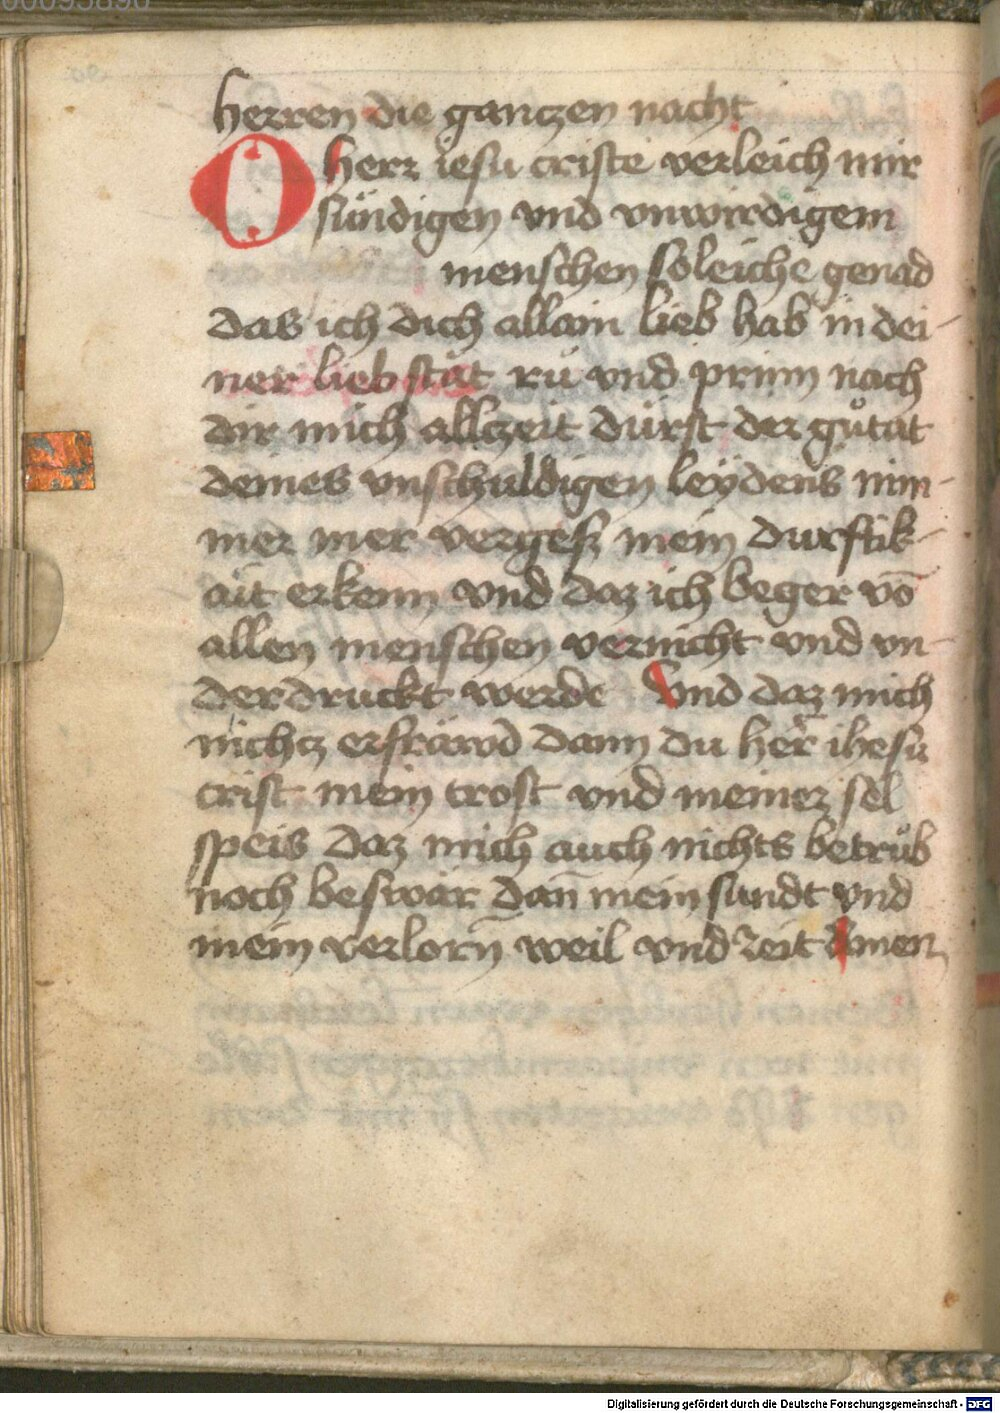 00095890
herren die gantzen nacht
O herr iesu criste verleich mir
sündigen vnd vnwirdigem
menschen soleiche genad
das ich dich allain lieb hab in dei-
ner lieb stät rů vnd prinn nach
dir mich allczeit dürst der gůtät
deines vnschuldigen leÿdens nim-
mer mer vergesz mein durftik-
ait erkenn vnd daz ich beger vō
allen menschen vernicht vnd vn-
derdruckt werde Vnd daz mich
nichcz erfräwd dann du herr ihesu
crist mein trost vnd meiner sel
speis daz mich auch nichts betrüb
noch beswär dan̄ mein sundt vnd
mein verlorn̄ weil vnd zeit Amen
Digitalisierung gefördert durch die Deutsche Forschungsgemeinschaft - DFG